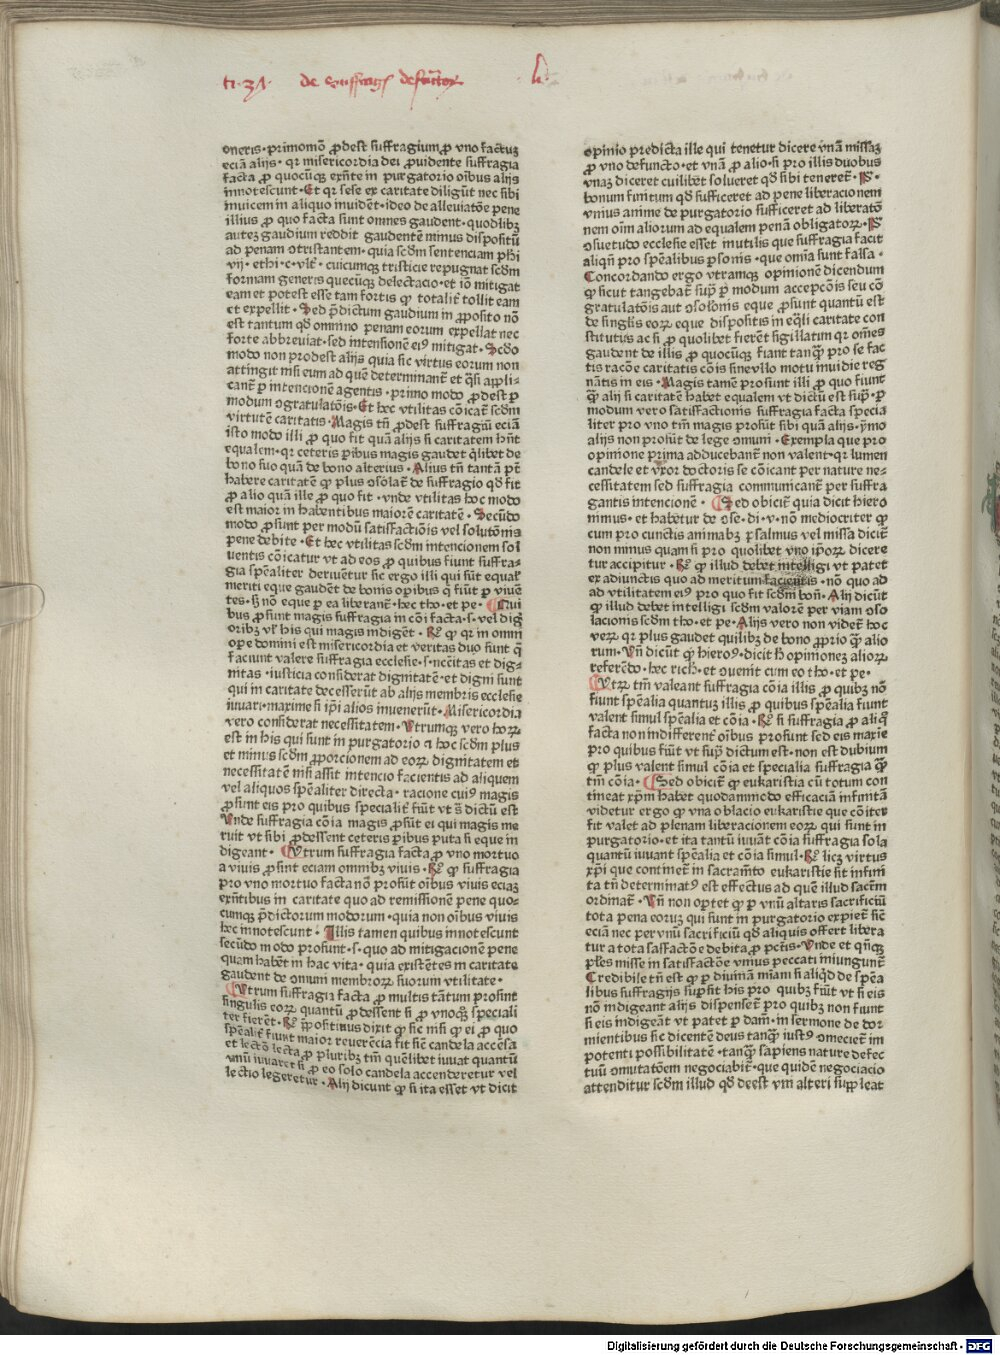 ti · 31 · de suffrag̃ defũctoꝝ · h ·
oneris · primomõ ꝓdest suffragium ꝓ vno factuꝫ
eciã alijs · qr misericordia dei ꝓuidente suffragia
facta ꝓ quocũqꝫ exñte in purgatorio oĩbus alijs
innotescunt · Et qr sese ex caritate diligũt nec sibi
inuicem in aliquo inuidẽt · ideo de alleuiatõe pene
illius ꝓ quo facta sunt omnes gaudent · quodlibꝫ
auteꝫ gaudium reddit gaudentẽ minus dispositũ
ad penam ↄtristantem · quia scđm sentenciam pħi
vij · ethi · c · vlt̃ · cuicumqꝫ tristicie repugnat scđm
formam generis quecũqꝫ delectacio · et iõ mitigat
eam et potest esse tam fortis ꝙ totalit̃ tollit eam
et expellit · Sed p̃dictum gaudium in ꝓposito nõ
est tantum qđ omnino penam eorum expellat nec
forte abbreuiat · sed intensionẽ eiꝰ mitigat · Scđo
modo non prodest alijs quia sic virtus eorum non
attingit nisi eum ad quẽ determinant̃ et q̃si appli-
cant̃ ꝑ intencionẽ agentis · primo modo ꝓdest ꝑ
modum ↄgratulatõis · Et hec vtilitas cõicat̃ scđm
virtutẽ caritatis · Magis tñ ꝓdest suffragiũ eciã
isto modo illi ꝓ quo fit quã alijs si caritatem hñt
equalem · qr ceteris ꝑibus magis gaudet q̃libet de
bono suo quã de bono alterius · Alius tñ tantã pt̃
habere caritatẽ ꝙ plus ↄsolat̃ de suffragio qđ fit
ꝓ alio quã ille ꝓ quo fit · vnde vtilitas hoc modo
est maior in habentibus maiorẽ caritatẽ · Secũdo
modo ꝓsunt per modũ satisfactiõis vel solutõnis
pene debite · Et hec vtilitas scđm intencionem sol
uentis cõicatur vt ad eos ꝓ quibus fiunt suffra-
gia sp̃ealiter deriuẽtur sic ergo illi qui sũt equal'
meriti eque gaudẽt de bonis oꝑibus q̃ fiũt ꝓ viuẽ
tes · ꝫ nõ eque ꝑ ea liberant̃ · hec tho · et pe · Qui
bus ꝓsunt magis suffragia in cõi facta · s · vel dig̃
oribꝫ vl' his qui magis indigẽt · Rͦ ꝙ qr in omni
oꝑe domini est misericordia et veritas duo sunt q̃
faciunt valere suffragia ecclesie · s · nc̃itas et dig-
nitas · iusticia considerat dignitatẽ · et digni sunt
qui in caritate decesserũt ab alijs membris ecclesie
iuuari · maxime si ip̃i alios inuenerũt · Misericordia
vero considerat necessitatem · Vtrumqꝫ vero hoꝝ
est in his qui sunt in purgatorio et hoc scđm plus
et minus scđm ꝓporcionem ad eoꝝ dignitatem et
necessitatẽ nisi assit intencio facientis ad aliquem
vel aliquos sp̃ealiter directa · racione cuiꝰ magis
ꝓsunt eis pro quibus specialit̃ fiũt vt s̃ dictũ est
Vnde suffragia cõia magis ꝓsũt ei qui magis me
ruit vt sibi ꝓdessent ceteris ꝑibus puta si eque in
digeant · Vtrum suffragia facta ꝓ vno mortuo
a viuis ꝓsint eciam omnibꝫ viuis · Rͦ ꝙ suffragia
pro vno mortuo facta nõ prosũt oĩbus viuis eciaꝫ
exñtibus in caritate quo ad remissionẽ pene quo-
cumqꝫ p̃dictorum modorum · quia non oĩbus viuis
hec innotescunt · Illis tamen quibus innotescunt
secũdo modo prosunt · s · quo ad mitigacionẽ pene
quam habẽt in hac vita · quia existẽtes in caritate
gaudent de omni membroꝝ suorum vtilitate ·
Vtrum suffragia facta ꝓ multis tãtum prosint
singulis eoꝝ quantũ ꝓdessent si ꝓ vnoqꝫ speciali
ter fierẽt · Rͦ p̃positinus dixit ꝙ sic nisi ꝙ ei ꝓ quo
sp̃ealit̃ fiunt maior reuerẽcia fit siẽ candela accẽsa
et lectõ lecta ꝓ pluribꝫ tm̃ quẽlibet iuuat quantũ
vnũ iuuaret si ꝓ eo solo candela accenderetur vel
lectio legeretur · Alij dicunt ꝙ si ita esset vt dicit
opinio predicta ille qui tenetur dicere vnã missaꝫ
ꝓ vno defuncto · et vnã ꝓ alio · si pro illis duobus
vnaꝫ diceret cuilibet solueret qđ sibi teneret̃ · P̃ ·
bonum finitum qđ sufficeret ad pene liberacionem
vnius anime de purgatorio sufficeret ad liberatõ
nem oĩm aliorum ad equalem penã obligatoꝝ · P̃
ↄsuetudo ecclesie esset inutilis que suffragia facit
aliqñ pro sp̃ealibus ꝑsonis · que om̃ia sunt falsa ·
Concordando ergo vtramqꝫ opinionẽ dicendum
ꝙ sicut tangebat̃ sup̃ ꝑ modum accepcõis seu cõ
gratulatõis aut ↄsolõnis eque ꝓsunt quantũ est
de singl'is eoꝝ eque dispositis in eq̃li caritate con
stitutus ac si ꝓ quolibet fierẽt sigillatim qr om̃es
gaudent de illis ꝓ quocũqꝫ fiant tanq̃ꝫ pro se fac
tis racõe caritatis cõis sine vllo motu inuidie reg
nãtis in eis · Magis tamẽ prosunt illi ꝓ quo fiunt
q̃ꝫ alij si caritatẽ habet equalem vt dictũ est sup̃ · ꝑ
modum vero satisfactionis suffragia facta specia
liter pro vno tm̃ magis prosũt sibi quã alijs · ymo
alijs non prosũt de lege ↄmuni · Exempla que pro
opinione prima adducebant̃ non valent · qr lumen
candele et vxor doctoris se cõicant per nature ne-
cessitatem sed suffragia communicant̃ per suffra
gantis intencionẽ · Sed obicit̃ quia dicit hiero
nimus · et habetur de ↄse · di · v · nõ mediocriter ꝙ
cum pro cunctis animabꝫ ꝑsalmus vel missa dicit̃
non minus quam si pro quolibet vno ip̃oꝝ dicere
tur accipitur · Rͦ ꝙ illud debet intelligi vt patet
ex adiunctis quo ad meritum facientis · nõ quo ad
ad vtilitatem eiꝰ pro quo fit scđm bon̄ · Alij dicũt
ꝙ illud debet intelligi scđm valorẽ per viam ↄso
lacionis scđm tho · et pe · Alijs vero non videt̃ hoc
veꝝ qr plus gaudet quilibꝫ de bono ꝓprio q̃ꝫ alio
rum · Vñ dicũt ꝙ hieroꝰ · dicit ħ opinioneꝫ alioꝝ
referẽdo · hec rich · et ↄuenit cum eo tho · et pe ·
Vtꝝ tm̃ valeant suffragia cõia illis ꝓ quibꝫ nõ
fiunt sp̃ealia quantuꝫ illis ꝓ quibus sp̃ealia fiunt
valent simul sp̃ealia et cõia · Rͦ si suffragia ꝓ aliq̃
facta non indifferent̃ oĩbus prosunt sed eis maxie
pro quibus fiũt vt sup̃ dictum est · non est dubium
ꝙ plus valent simul cõia et specialia suffragia q̃ꝫ
tm̃ cõia · Sed obicit̃ ꝙ eukaristia cũ totum con
tineat xp̃m habet quodammodo efficaciã infinitã
videtur ergo ꝙ vna oblacio eukaristie que cõiter
fit valet ad plenam liberacionem eoꝝ qui sunt in
purgatorio · et ita tantũ iuuãt cõia suffragia sola
quantũ iuuant sp̃ealia et cõia simul · Rͦ licꝫ virtus
xp̃i que continet̃ in sacram̃to eukaristie sit infini
ta tñ determinatꝰ est effectus ad quẽ illud sacm̃
ordinat̃ · Vñ non oꝑtet ꝙ ꝑ vnũ altaris sacrificiũ
tota pena eoruꝫ qui sunt in purgatorio expiet̃ siẽ
eciã nec per vnũ sacrificiũ qđ aliquis offert libera
tur a tota satisfactõe debita ꝓ pctĩs · Vnde et qñqꝫ
pl'es misse in satisfactõe vnius peccati iniungunt̃
Credibile tñ est ꝙ ꝑ diuinã miam si aliqđ de sp̃ea
libus suffragijs suꝑsit his pro quibꝫ fiũt vt si eis
nõ indigeant alijs dispenset̃ pro quibꝫ non fiunt
si eis indigeãt vt patet ꝑ dam̃ · in sermone de dor
mientibus sic dicentẽ deus tanq̃ꝫ iustꝰ ↄmeciet̃ im
potenti possibilitatẽ · tanq̃ꝫ sapiens nature defec
tuũ ↄmutatõem negociabit̃ · que quidẽ negociacio
attenditur scđm illud qđ deest vni alteri suppleat
Digitalisierung gefördert durch die Deutsche Forschungsgemeinschaft · DFG